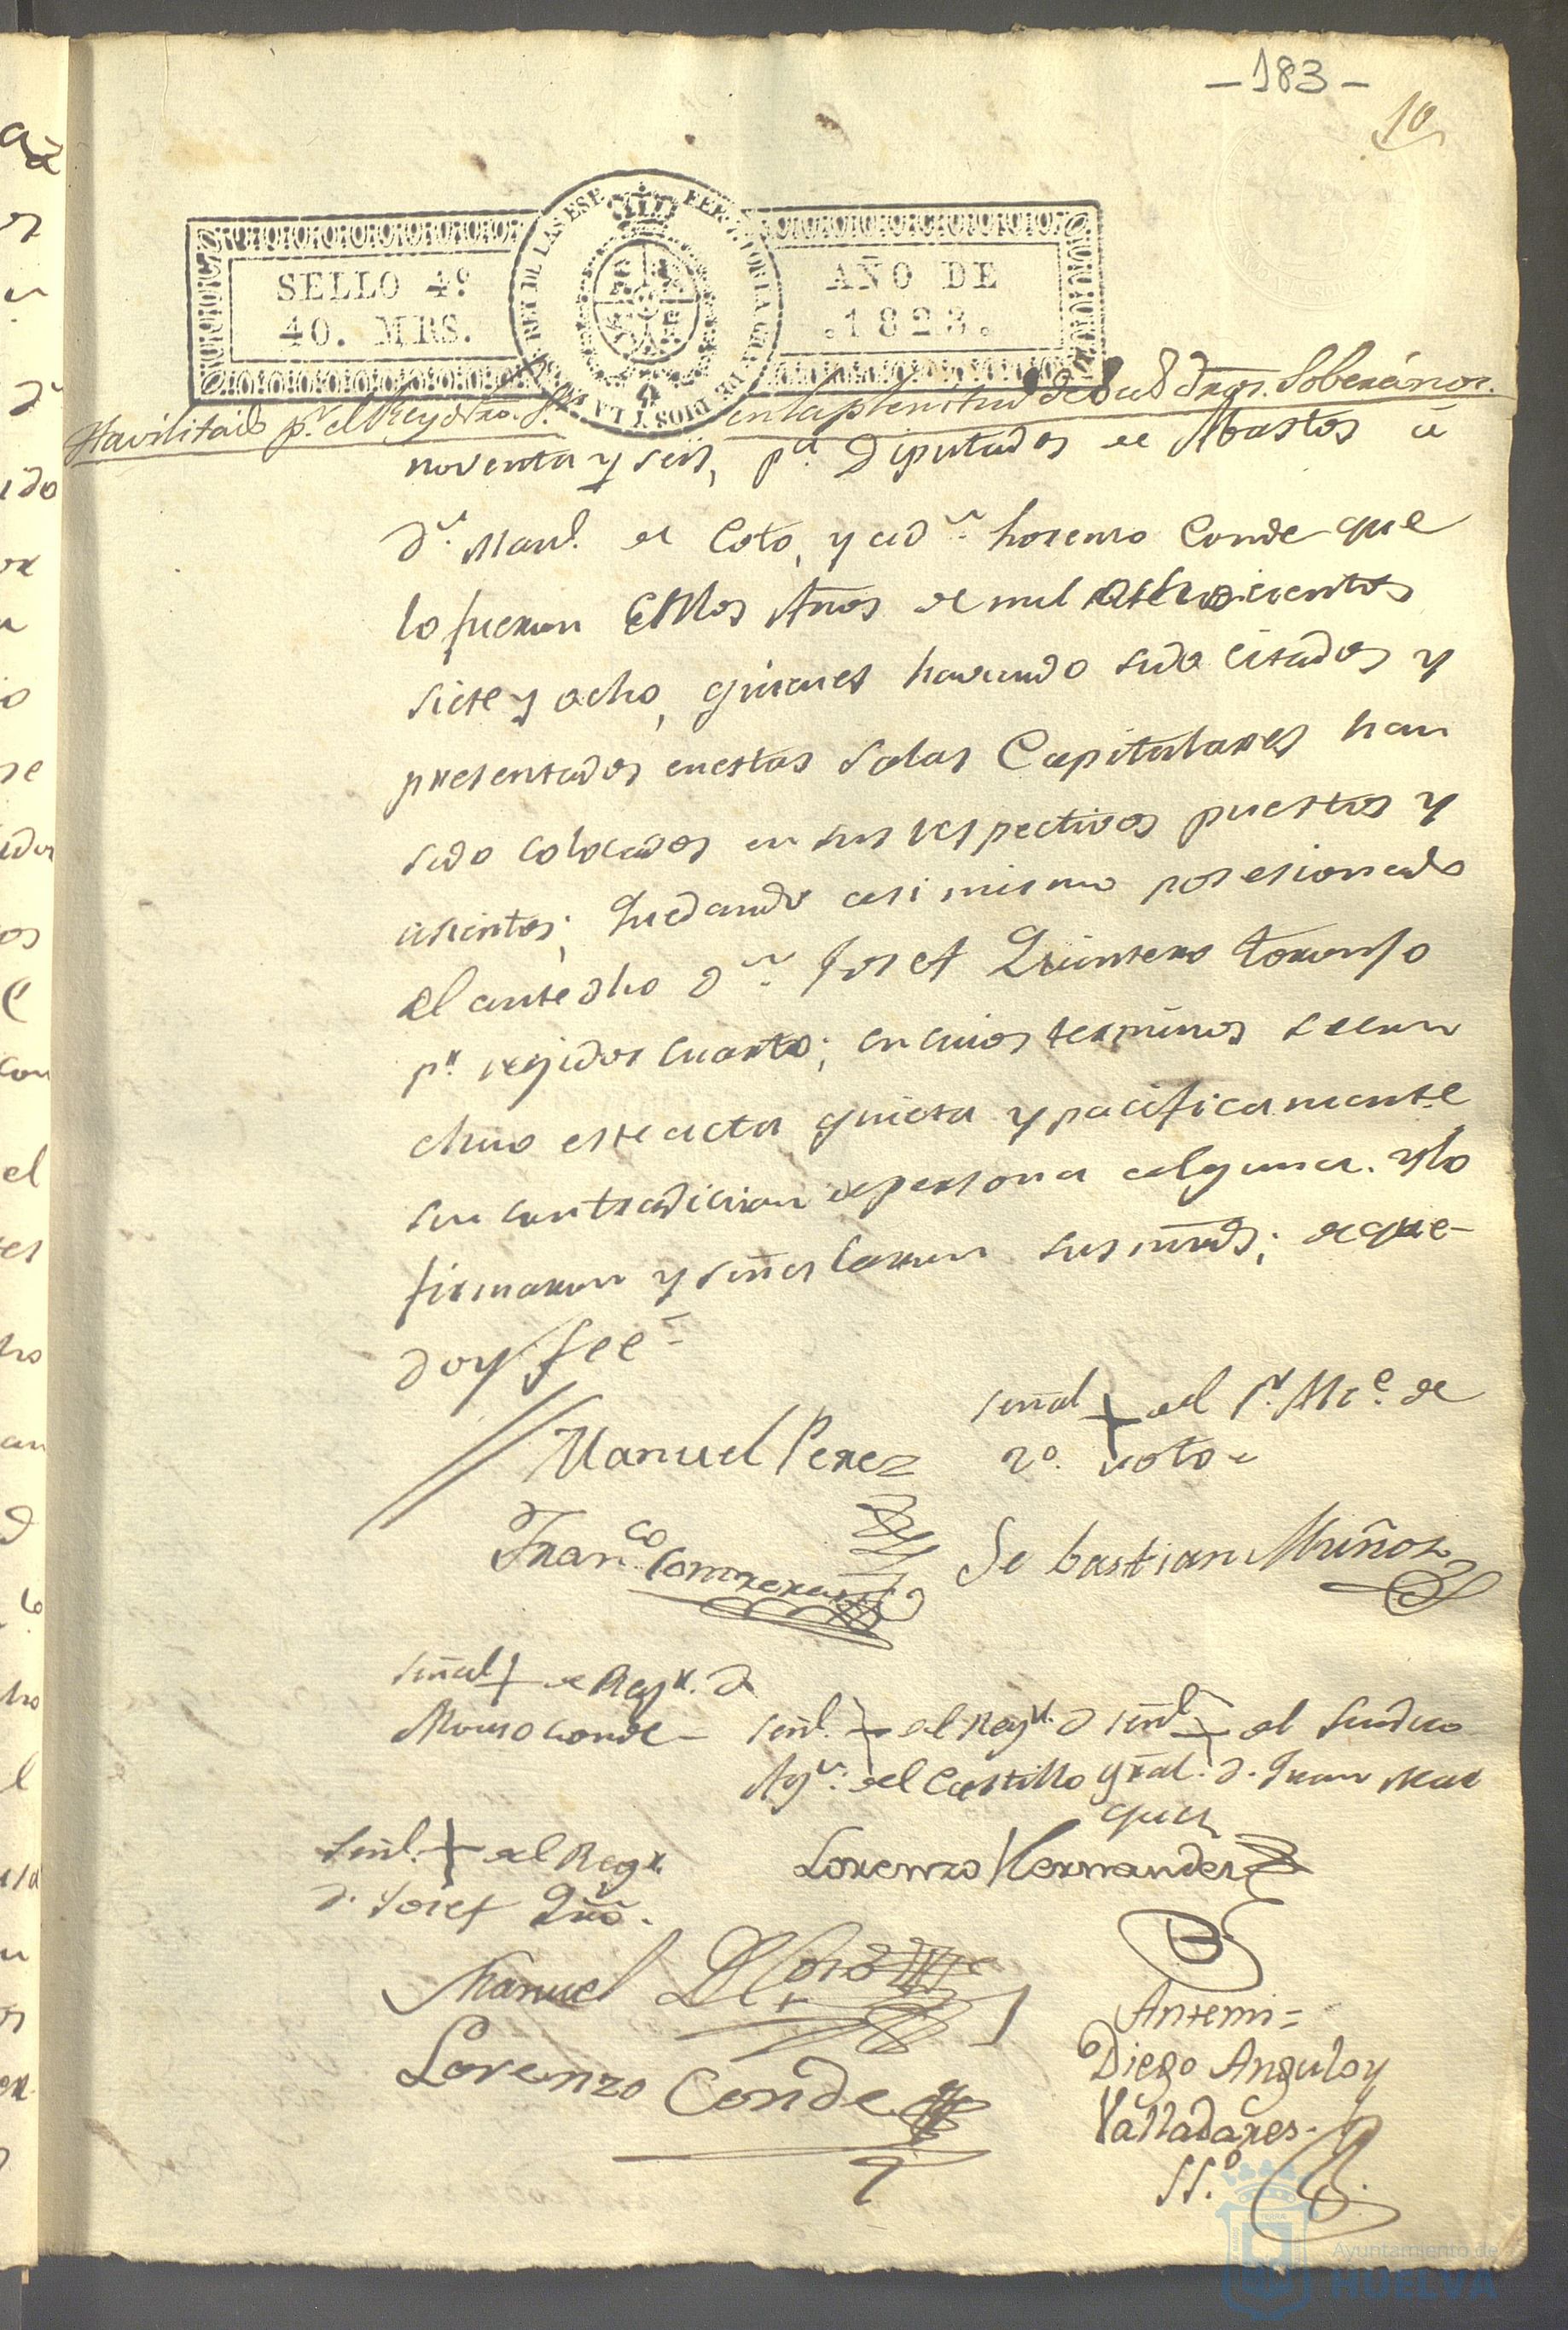 -183-
10
SELLO 4º
40. MRS.
AÑO DE
.1823.
Havilitado pr. el Rey ntro. Sr. en la plenitud de sus dros. Soberanos.
noventa y seis, pa. Diputados de Abastos á
Dn. Manl. de Coto, y a Dn. Lorenzo Conde que
lo fueron en los Años de mil ochocientos
siete y ocho, quienes haviendo sido citados y
presentados en estas Salas Capitulares han
sido colocados en sus respectivos puestos y
asientos; quedando asi mismo posesionado
el antedho Dn. Josef Quintero
pr. rejidor cuarto; en cuios terminos se con
cluio este acto quieta y pacificamente
sin contradicion de persona alguna. Y lo
firmaron y señalaron sus mrds; de que
doy fee=
Manuel Perez
señal + del Sr. Alce. de
2º. voto
Franco. Contreras
Sebastian Muñoz
señal + de Regr. D
Alonso Conde
señl. + del Regr. D
Agn. del Castillo
señl + del Sindico
gral. D. Juan Mar
quez
señl. + del Regr.
D. Josef Qro.
Lorenzo Hernandez
Manuel Dl Coto
Lorenzo Conde
Antemi=
Diego Angulo y
Valladares.
SSº.
Ayuntamiento de
HUELVA